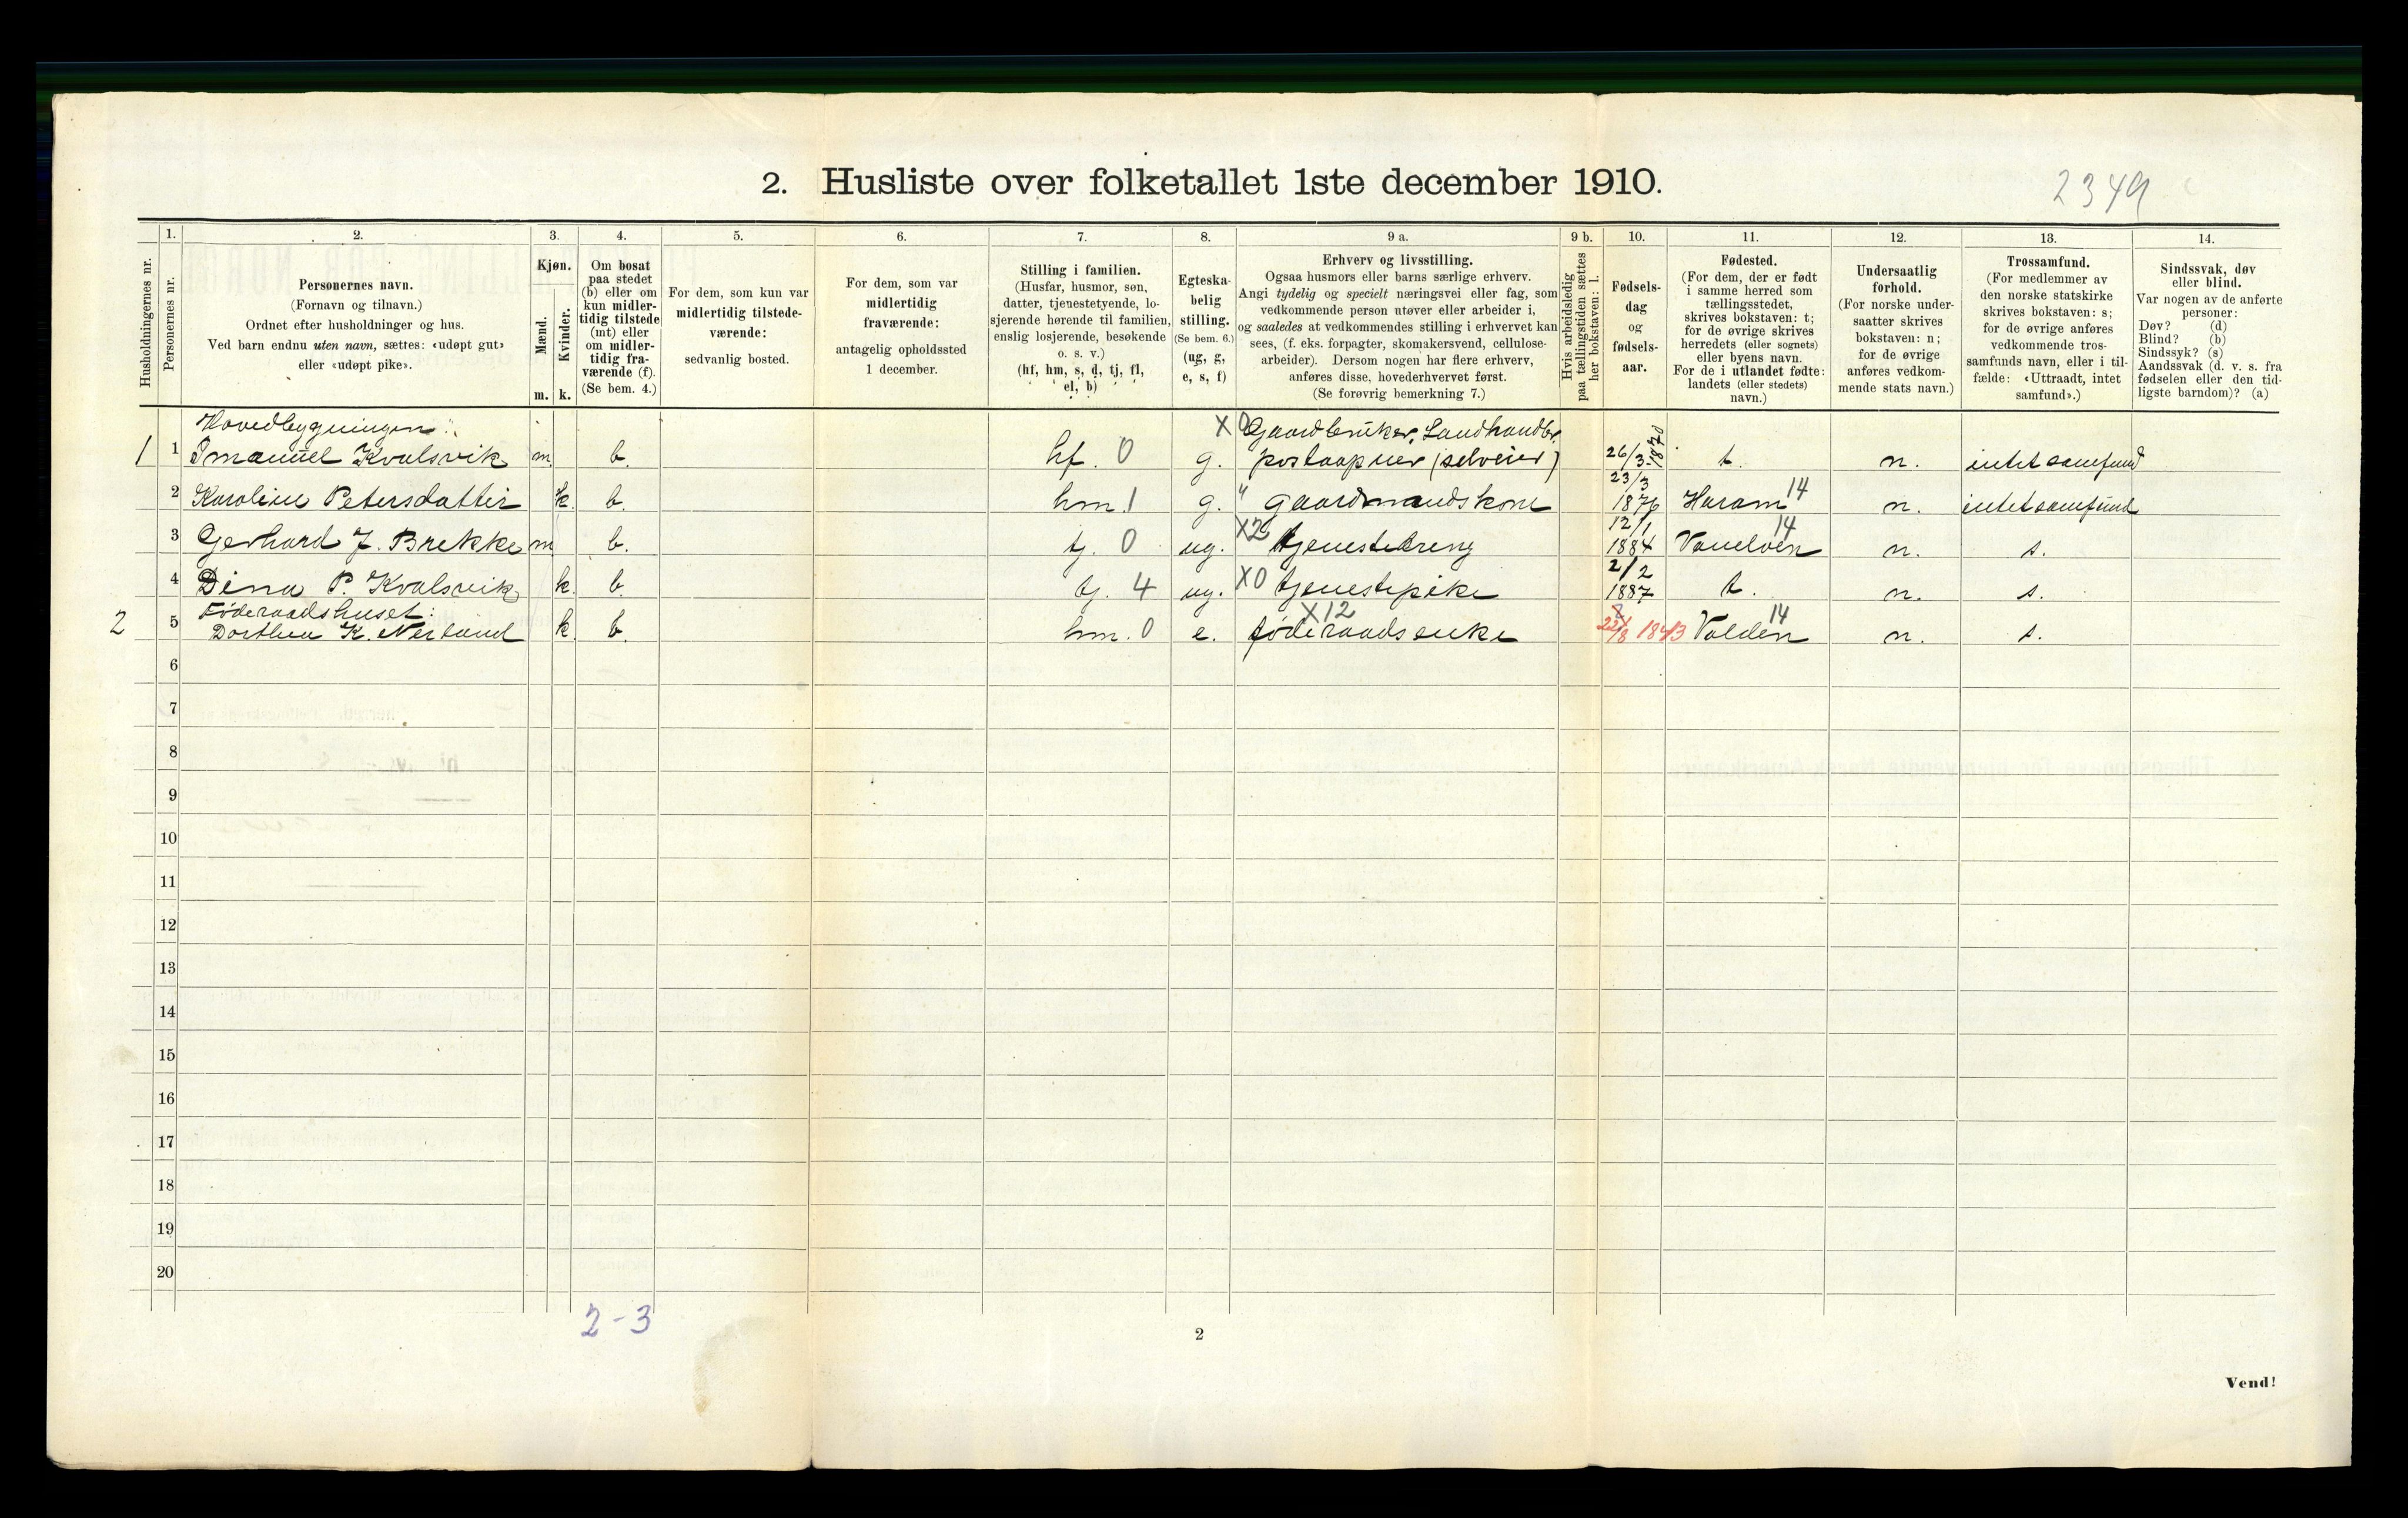 2. Husliste over folketallet 1ste december 1910.
2349
Husholdningernes nr.
1.
Personernes nr.
2.
Personernes navn.
(Fornavn og tilnavn.)
Ordnet efter husholdninger og hus.
Ved barn endnu uten navn, sættes: «udøpt gut»
eller «udøpt pike».
3.
Kjøn.
Mænd.
Kvinder.
m. k.
4.
Om bosat
paa stedet
(b) eller om
kun midler-
tidig tilstede
(mt) eller
om midler-
tidig fra-
værende (f).
(Se bem. 4.)
5.
For dem, som kun var
midlertidig tilstede-
værende:
sedvanlig bosted.
6.
For dem, som var
midlertidig
fraværende:
antagelig opholdssted
1 december.
7.
Stilling i familien.
(Husfar, husmor, søn,
datter, tjenestetyende, lo-
sjerende hørende til familien,
enslig losjerende, besøkende
o. s. v.)
(hf, hm, s, d, tj, fl,
el, b)
8.
Egteska-
belig
stilling.
(Se bem. 6.)
(ug, g,
e, s, f)
9 a.
Erhverv og livsstilling.
Ogsaa husmors eller barns særlige erhverv.
Angi tydelig og specielt næringsvei eller fag, som
vedkommende person utøver eller arbeider i,
og saaledes at vedkommendes stilling i erhvervet kan
sees, (f. eks. forpagter, skomakersvend, cellulose-
arbeider). Dersom nogen har flere erhverv,
anføres disse, hovederhvervet først.
(Se forøvrig bemerkning 7.)
9 b.
Hvis arbeidsledig
paa tællingstiden sættes
her bokstaven: l.
10.
Fødsels-
dag
og
fødsels-
aar.
11.
Fødested.
(For dem, der er født
i samme herred som
tællingsstedet,
skrives bokstaven: t;
for de øvrige skrives
herredets (eller sognets)
eller byens navn.
For de i utlandet fødte:
landets (eller stedets)
navn.)
12.
Undersaatlig
forhold.
(For norske under-
saatter skrives
bokstaven: n;
for de øvrige
anføres vedkom-
mende stats navn.)
13.
Trossamfund.
(For medlemmer av
den norske statskirke
skrives bokstaven: s;
for de øvrige anføres
vedkommende tros-
samfunds navn, eller i til-
fælde: «Uttraadt, intet
samfund».)
14.
Sindssvak, døv
eller blind.
Var nogen av de anførte
personer:
Døv? (d)
Blind? (b)
Sindssyk? (s)
Aandssvak (d. v. s. fra
fødselen eller den tid-
ligste barndom)? (a)
Hovedbygningen: X Gaardbruker, Landhandler,
1 1 Imanuel Kvalsvik m. b. hf. 0 g. postaapner (selveier) 26/3 1870 t. n. intet samfund
2 Karoline Petersdatter k. b. hm. 1 g. " gaardmandskone 23/3 1876 Haram 14 n. intet samfund
3 Gerhard J. Brekke m b. tj. 0 ug. X2 tjenestedreng 12/1 1884 Vanelven 14 n. s.
4 Dina P. Kvalsvik k. b. tj. 4 ug. X0 tjenestepike 2/2 1887 t. n. s.
Føderaadshuset: X12
2 5 Dorthea K. Nerland k. b. hm. 0 e. føderaadsenke 22/8 1843 Volden 14 n. s.
6
7
8
9
10
11
12
13
14
15
16
17
18
19
20
2-3
2
Vend!